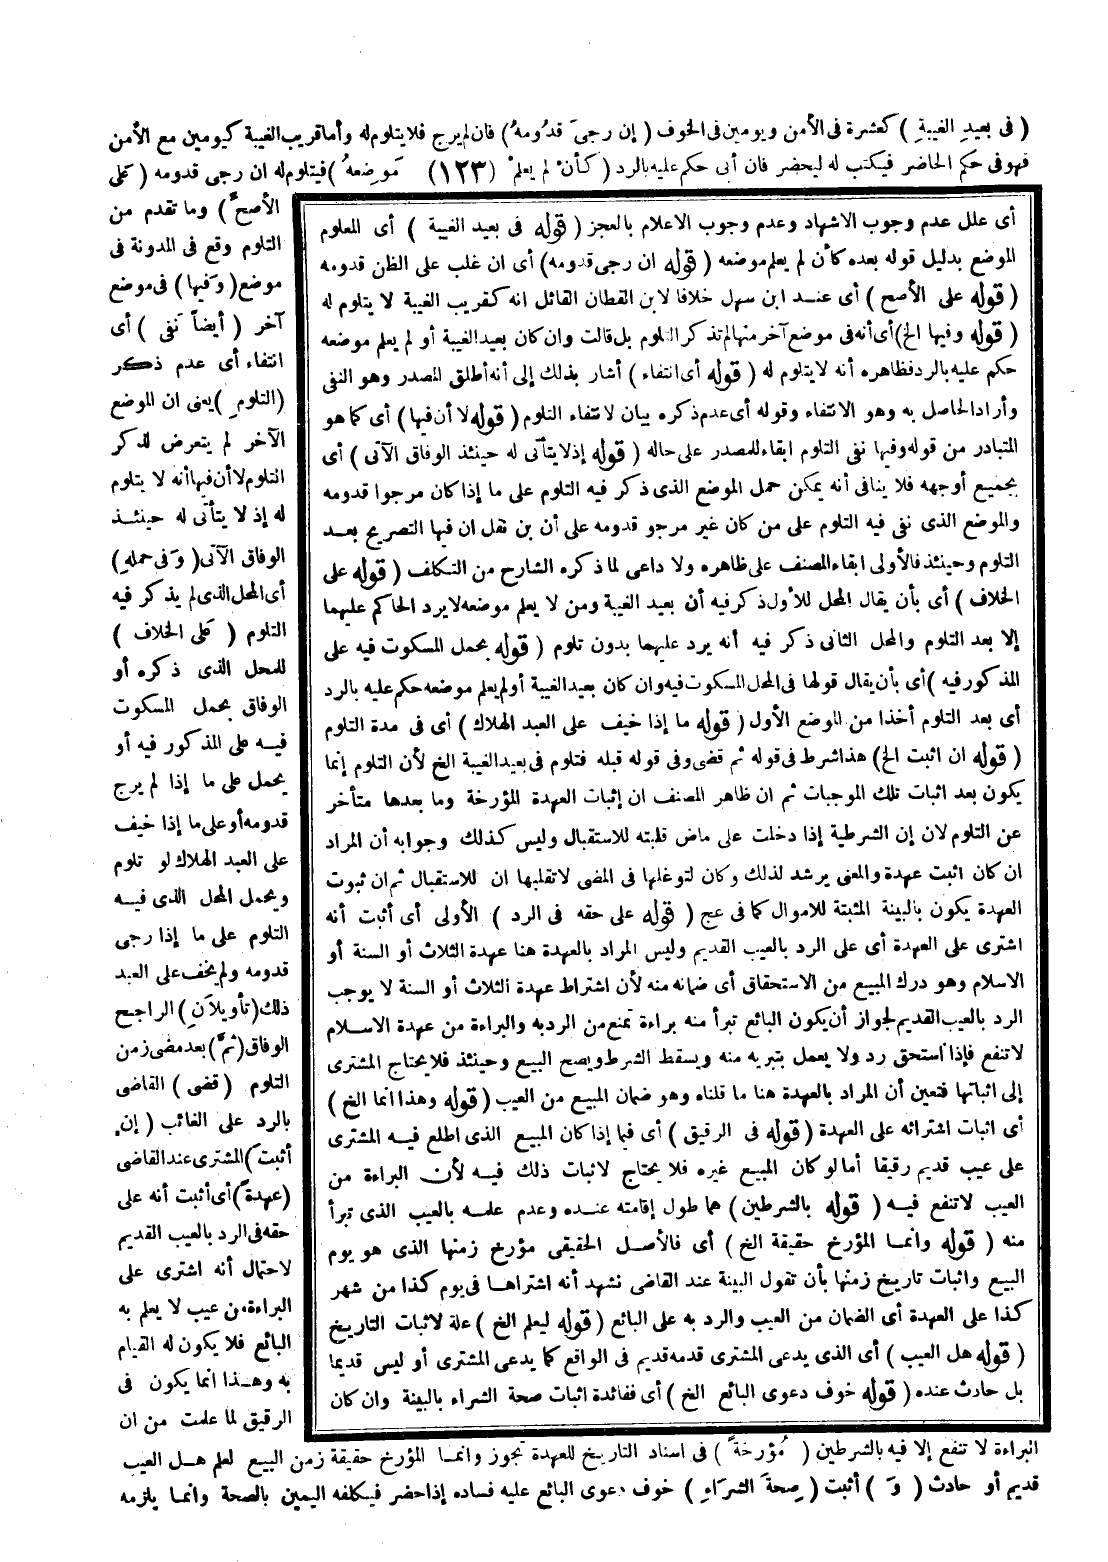 ( فى بعيد الغيبة ) كعشرة فى الأمن ويومين فى الخوف ( إن رجى قدُومهُ ) فان لم يرج فلا يتلوم له وأما قريب الغيبة كيومين مع الأمن
فهو فى حكم الحاضر فيكتب له ليحضر فان أبى حكم عليه بالرد ( كأنْ لم يعلمْ (١٢٣) مَوضِعهُ ) فيتلوم له ان رجى قدومه ( عَلَى
الأصحِّ ) وما تقدم من
التلوم وقع فى المدونة فى
موضع ( وَفيها ) فى موضع
آخر ( أيضاً نَفى ) أى
انتفاء أى عدم ذكر
(التلوم) يعنى ان الموضع
الآخر لم يتعرض لذكر
التلوم لا أن فيها أنه لا يتلوم
له إذ لا يتأتى له حينئذ
الوفاق الآتى ( وَفى حمله )
أى المحل الذى لم يذكر فيه
التلوم ( عَلى الخلاف )
للمحل الذى ذكره أو
الوفاق بحمل المسكوت
فيه على المذكور فيه أو
يحمل على ما إذا لم يرج
قدومه أو على ما إذا خيف
على العبد الهلاك لو تلوم
ويحمل المحل الذى فيه
التلوم على ما إذا رجى
قدومه ولم يخف على العبد
ذلك ( تأويلاَنِ ) الراجح
الوفاق ( ثمَّ ) بعد مضى زمن
التلوم ( قضى ) القاضى
بالرد على الغائب ( إن
أثبتَ ) المشترى عند القاضى
(عهدةً) أى أثبت أنه على
حقه فى الرد بالعيب القديم
لاحتمال أنه اشترى على
البراءة من عيب لا يعلم به
البائع فلا يكون له القيام
به وهذا انما يكون فى
الرقيق لما علمت من ان
أى علل عدم وجوب الاشهاد وعدم وجوب الاعلام بالعجز ( قوله فى بعيد الغيبة ) أى المعلوم
الموضع بدليل قوله بعده كأن لم يعلم موضعه ( قوله ان رجى قدومه ) أى ان غلب على الظن قدومه
( قوله على الأصح ) أى عند ابن سهل خلافا لابن القطان القائل انه كقريب الغيبة لا يتلوم له
( قوله وفيها الخ ) أى أنه فى موضع آخر منها لم تذكر التلوم بل قالت وان كان بعيد الغيبة أو لم يعلم موضعه
حكم عليه بالرد فظاهره أنه لا يتلوم له ( قوله أى انتفاء ) أشار بذلك إلى أنه أطلق المصدر وهو النفى
وأراد الحاصل به وهو الانتفاء وقوله أى عدم ذكره بيان لانتفاء التلوم ( قوله لا أن فيها ) أى كما هو
المتبادر من قوله وفيها نفى التلوم ابقاء للمصدر على حاله ( قوله إذ لا يتأتى له حينئذ الوفاق الآتى ) أى
بجميع أوجهه فلا ينافى أنه يمكن حمل الموضع الذى ذكر فيه التلوم على ما إذا كان مرجوا قدومه
والموضع الذى نفى فيه التلوم على من كان غير مرجو قدومه على أن بن نقل ان فيها التصريح بعد
التلوم وحينئذ فالأولى ابقاء المصنف على ظاهره ولا داعى لما ذكره الشارح من التكلف ( قوله على
الخلاف ) أى بأن يقال المحل للأول ذكر فيه أن بعيد الغيبة ومن لا يعلم موضعه لا يرد الحاكم عليهما
إلا بعد التلوم والمحل الثانى ذكر فيه أنه يرد عليهما بدون تلوم ( قوله بحمل المسكوت فيه على
المذكور فيه ) أى بأن يقال قولها فى المحل المسكوت فيه وان كان بعيد الغيبة أو لم يعلم موضعه حكم عليه بالرد
أى بعد التلوم أخذا من الموضع الأول ( قوله ما إذا خيف على العبد الهلاك ) أى فى مدة التلوم
( قوله ان اثبت الخ ) هذا شرط فى قوله ثم قضى وفى قوله قبله فتلوم فى بعيد الغيبة الخ لأن التلوم إنما
يكون بعد اثبات تلك الموجبات ثم ان ظاهر المصنف ان إثبات العهدة المؤرخة وما بعدها متأخر
عن التلوم لان إن الشرطية إذا دخلت على ماض قلبته للاستقبال وليس كذلك وجوابه أن المراد
ان كان اثبت عهدة والمعنى يرشد لذلك وكان لتوغلها فى المضى لا تقلبها ان للاستقبال ثم ان ثبوت
العهدة يكون بالبينة المثبتة للاموال كما فى عج ( قوله على حقه فى الرد ) الأولى أى أثبت أنه
اشترى على العهدة أى على الرد بالعيب القديم وليس المراد بالعهدة هنا عهدة الثلاث أو السنة أو
الاسلام وهو درك المبيع من الاستحقاق أى ضمانه منه لأن اشتراط عهدة الثلاث أو السنة لا يوجب
الرد بالعيب القديم لجواز أن يكون البائع تبرأ منه براءة تمنع من الرد به والبراءة من عهدة الاسلام
لا تنفع فإذا استحق رد ولا يعمل بتبريه منه ويسقط الشرط ويصح البيع وحينئذ فلا يحتاج المشترى
إلى اثباتها فتعين أن المراد بالعهدة هنا ما قلناه وهو ضمان المبيع من العيب ( قوله وهذا انما الخ )
أى اثبات اشترائه على العهدة ( قوله فى الرقيق ) أى فيما إذا كان المبيع الذى اطلع فيه المشترى
على عيب قديم رقيقا أما لو كان المبيع غيره فلا يحتاج لاثبات ذلك فيه لأن البراءة من
العيب لا تنفع فيه ( قوله بالشرطين ) هما طول إقامته عنده وعدم علمه بالعيب الذى تبرأ
منه ( قوله وانما المؤرخ حقيقة الخ ) أى فالأصل الحقيقى مؤرخ زمنها الذى هو يوم
البيع واثبات تاريخ زمنها بأن تقول البينة عند القاضى نشهد أنه اشتراها فى يوم كذا من شهر
كذا على العهدة أى الضمان من العيب والرد به على البائع ( قوله ليعلم الخ ) علة لاثبات التاريخ
( قوله هل العيب ) أى الذى يدعى المشترى قدمه قديم فى الواقع كما يدعى المشترى أو ليس قديما
بل حادث عنده ( قوله خوف دعوى البائع الخ ) أى ففائدة اثبات صحة الشراء بالبينة وان كان
البراءة لا تنفع إلا فيه بالشرطين ( مُؤرخةً ) فى اسناد التاريخ للعهدة تجوز وانما المؤرخ حقيقة زمن البيع لعلم هل العيب
قديم أو حادث ( وَ ) أثبت ( صِحةَ الشرَاءِ ) خوف دعوى البائع عليه فساده إذا حضر فيكلفه اليمين بالصحة وانما يلزمه